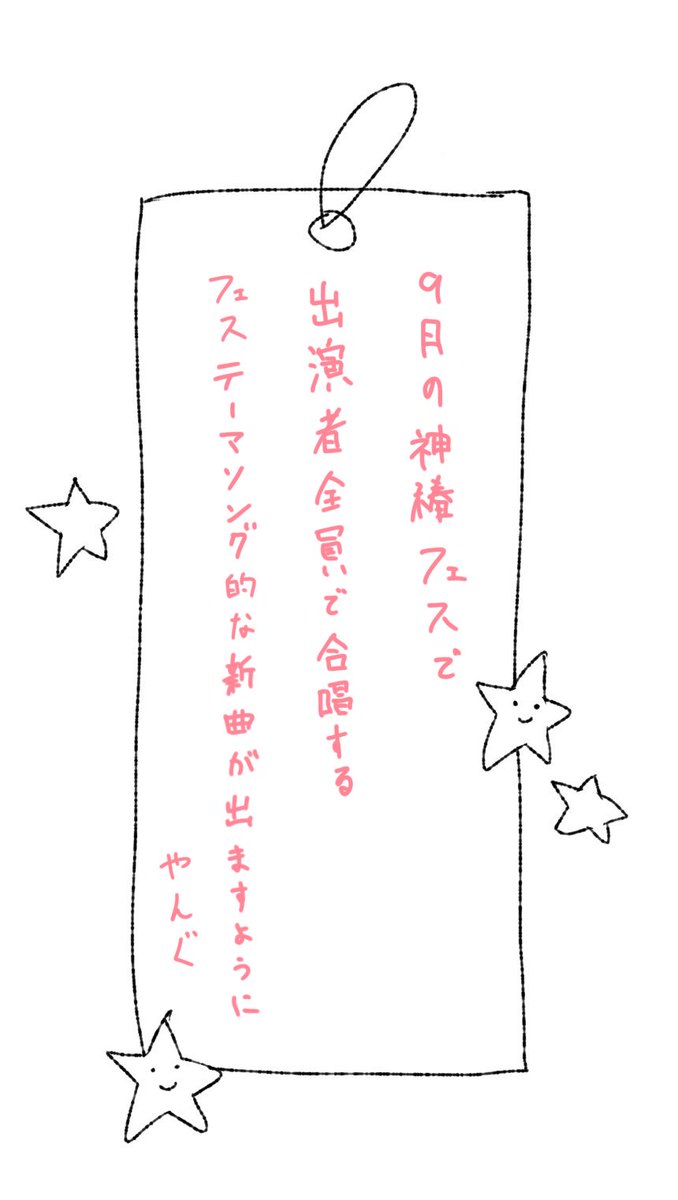 9月の神椿フェスで
出演者全員で合唱する
フェステーマソング的な新曲が出ますように
やんぐ